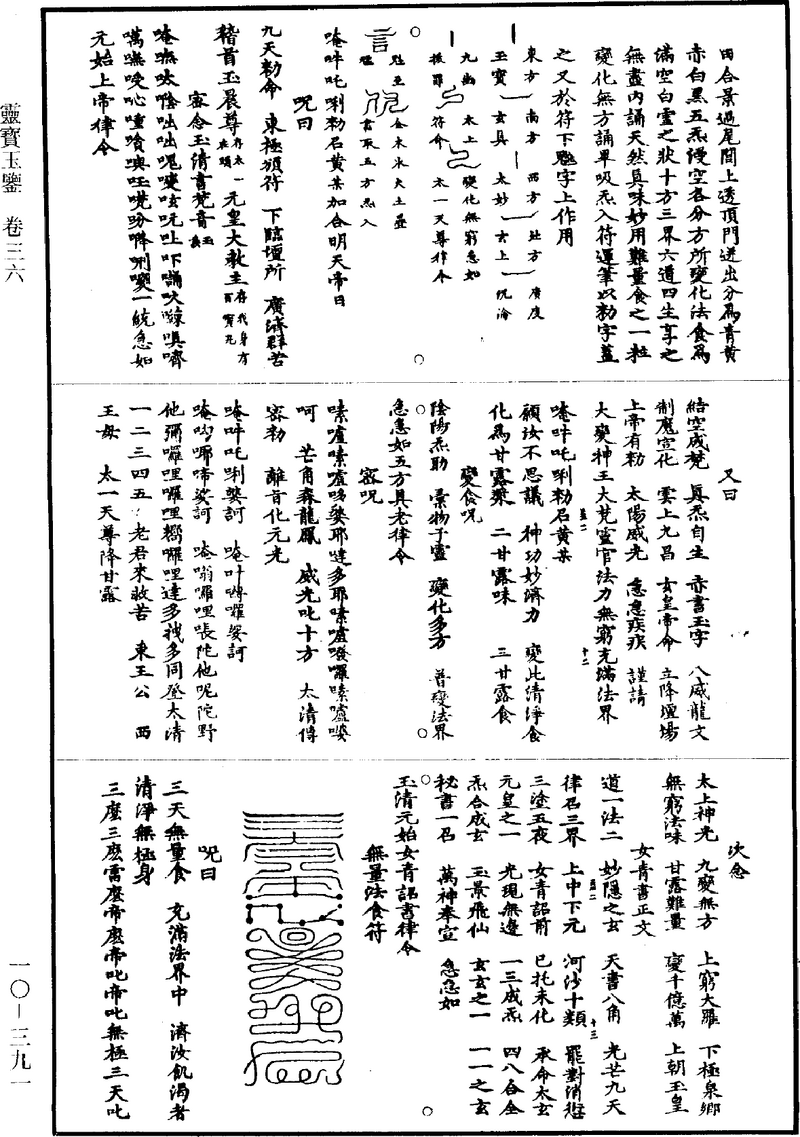 靈寶玉鑒　卷三六
一〇—三九一
田合景過尾閭上透頂門迸出分爲青黃
赤白黑五炁浸空各分方所變化法食爲
滿空白雪之狀十方三界六道四生享之
無盡内誦天然真味妙用難量食之一粒
變化無方誦畢吸炁入符運筆以勑字蓋
之又於符下魓字上作用
東方　南方　西方　北方　廣度
玉寶　玄真　太妙　玄上　沉淪
九幽　太上　變化無窮急如
拔罪　符命　太一天尊律令
金木水火土
書取五方炁入
唵吽吒唎勑召黃某加合明天帝日
呪曰
九天勑命　東極頒符　下臨壇所　廣濟群苦
稽首玉晨尊　元皇大教主
密念玉清書梵音
元始上帝律令
又曰
結空成梵　真炁自生　赤書玉字　八威龍文
制魔宣化　雲上九昌　玄皇帝命　立降壇場
上帝有勑　太陽威光　急急疾疾　謹請
大變神王大梵靈官法力無窮充滿法界
唵吽吒唎勑召黃某
願汝不思議　神功妙濟力　變此清淨食
化爲甘露漿　二甘露味　三甘露食
變食呪
陰陽炁助　稟物于靈　變化多方　普變法界
急急如五方真老律令
密呪
呵　芒角森龍鳳　威光叱十方　太清傳
密勑　離旨化元光
唵吽吒唎娑訶　唵吽𠹌囉娑訶
他彌囉哩囉哩嚮囉哩達多我多同登太清
一二三四五　老君來救苦　東王公　西
王母　太一天尊降甘露
次念
太上神光　九變無方　上窮大羅　下極泉鄉
無窮法味　甘露難量　變千億萬　上朝玉皇
女青書正文
道一法二　妙隱之玄　天書八角　光芒九天
律召三界　上中下元　河沙十類　罷對消愆
三塗五夜　女青詔前　已托未化　承命太玄
元皇之一　光現無邊　一三成炁　四八合全
炁合成玄　玉景飛仙　玄玄之一　一一之玄
秘書一召　萬神奉宣　急急如
玉清元始女青詔書律令
無量法食符
呪曰
三天無量食　充滿法界中　濟汝飢渴者
清淨無極身
三麼三麽雷麽帝麽帝叱帝叱無極三天叱